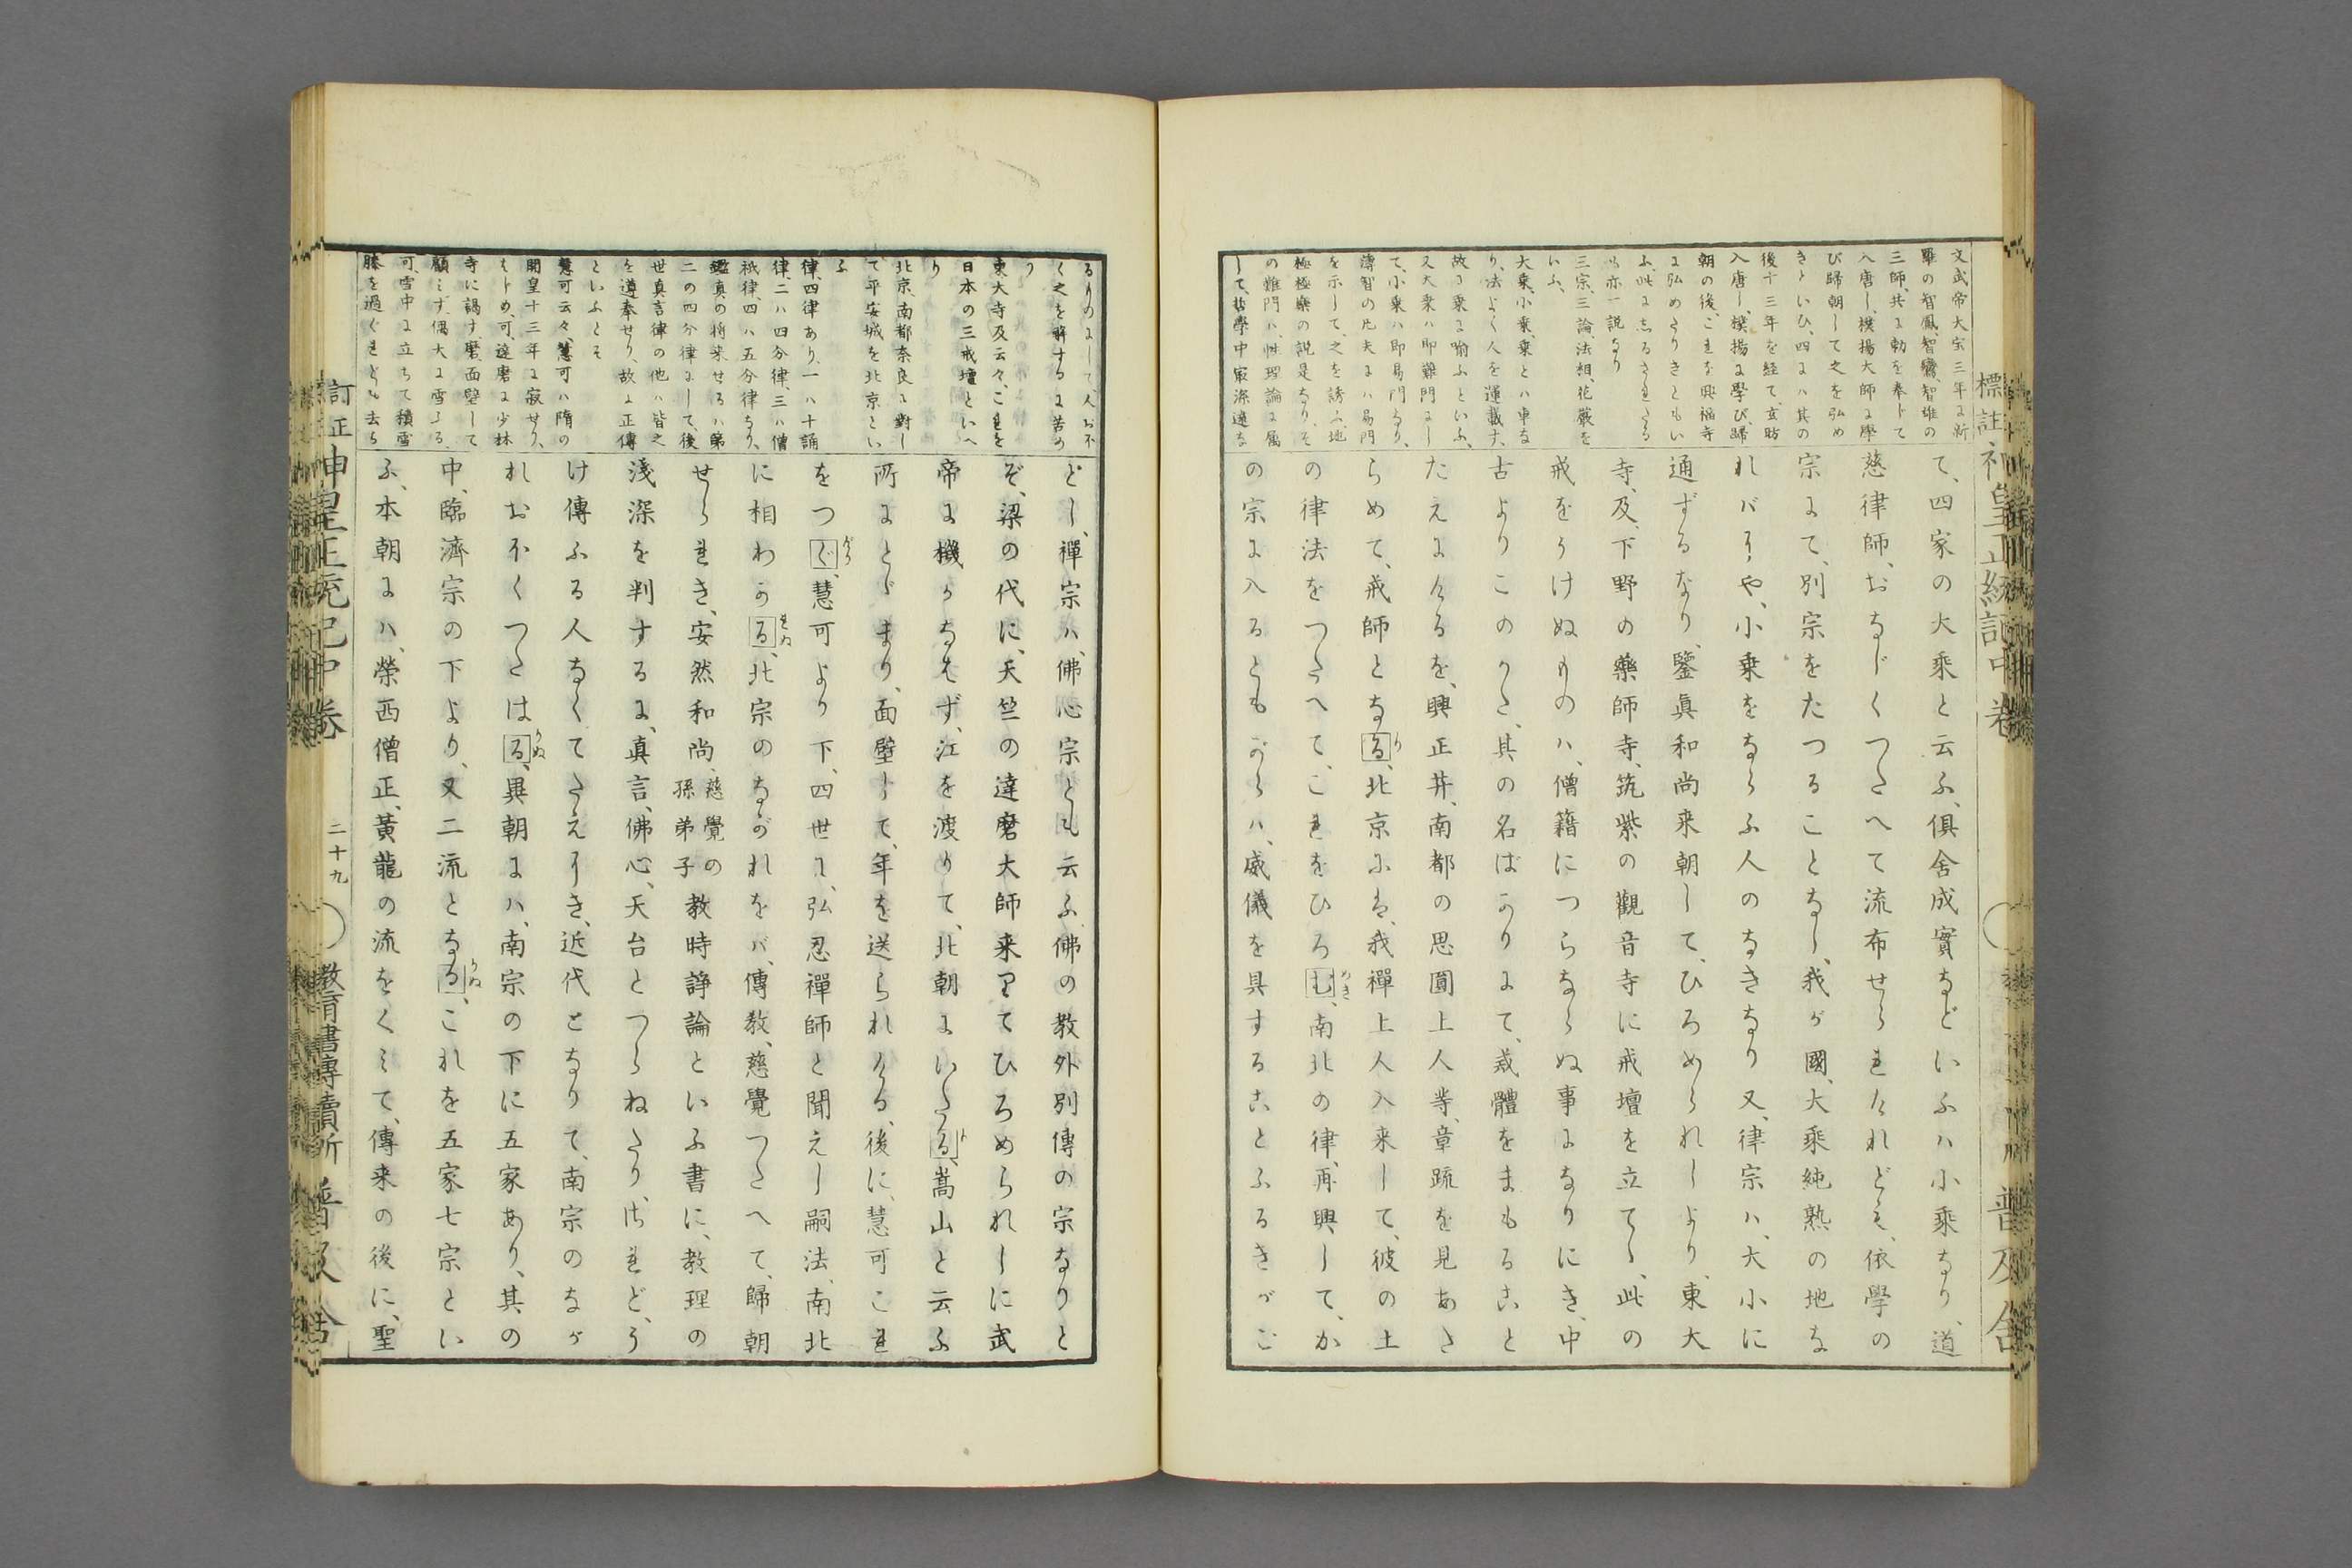 標註神皇正統記中卷
普及舍
文武帝大宗三年に新
羅の智鳳、智鸞、智雄の
三師、共に勅を奉じて
入唐し、撲揚大師に學
び歸朝して之を弘め
きといひ、四にハ其の
後十三年を経て、玄昉
入唐し、撲揚に學び、歸
朝の後、これを興福寺
に弘めたりきともい
ふ、此に志るされたる
も亦一説なり
三宗、三論、法相、花嚴を
いふ、
大乗、小乗、乗とハ車な
り、法よく人を運載す、
故に乗に喩ふといふ、
又大乗ハ即難門にし
て、小乗ハ即易門なり、
薄智の凡夫にハ易門
を示して、之を誘ふ、地
極極樂の説是なり、そ
の難門ハ、性理論に属
して、哲學中最深遠な
て、四家の大乘と云ふ、俱舍成實などいふハ小乘なり、道
慈律師、おなじくつたへて流布せられけれども、依學の
宗にて、別宗をたつることなし、我が國、大乘純熟の地な
れバにや、小乗をならふ人のなきなり又、律宗ハ、大小に
通ずるなり、鑒眞和尚来朝して、ひろめられしより、東大
寺、及、下野の藥師寺、筑紫の觀音寺に戒壇を立てゝ、此の
戒をうけぬものハ、僧籍につらならぬ事になりにき、中
古よりこのかた、其の名ばかりにて、戒體をまもること
たえにけるを、興正井、南都の思圓上人等、章疏を見あき
らめて、戒師となる、り北京にハ、我禪上人入来して、彼の土
の律法をつたへて、これをひろむ、めき南北の律、再興して、か
の宗に入るともがらハ、威儀を具することふるきがご
るものにして、人お不
く之を解するに苦め
り
東大寺及云々、これを
日本の三戒壇といへ
り
北京、南都奈良に對し
て平安城を北京とい
ふ
律、四律あり、一ハ十誦
律、二ハ四分律、三ハ僧
祇律、四ハ五分律なり、
鑑真の将来せるハ第
二の四分律にして、後
世真言律の他ハ皆之
を遵奉せり、故に正傳
といふとそ
慧可云々、慧可ハ隋の
開皇十三年に寂せり、
はじめ、可、達磨に少林
寺に謁す、磨、面壁して
顧みず、偶大に雪ふる、
可、雪中に立ちて積雪
膝を過ぐれども去ら
どし、禪宗ハ、佛心宗とも云ふ、佛の教外別傳の宗なりと
ぞ、梁の代に、天竺の達磨大師来りてひろめられしに武
帝に機かなはず、江を渡りて、北朝にいたる、ト嵩山と云ふ
所にとゞまり、面壁して、年を送られける、後に、慧可これ
をつぐ、がう慧可より下、四世に、弘忍禪師と聞えし嗣法、南北
に相わかる、れぬ北宗のながれをバ、傳教、慈覺つたへて、歸朝
せられき、安然和尚、慈覺の孫弟子教時諍論といふ書に、教理の
淺深を判するに、真言、佛心、天台とつらねたり、されど、う
け傳ふる人なくてたえにき、近代となりて、南宗のなが
れお不くつたはる、りぬ異朝にハ、南宗の下に五家あり、其の
中、臨濟宗の下より、又二流となる、りぬこれを五家七宗とい
ふ、本朝にハ、榮西僧正、黃龍の流をくみて、傳来の後に、聖
訂正神皇正統記中卷
二十九
教育書專賣所
普及舍